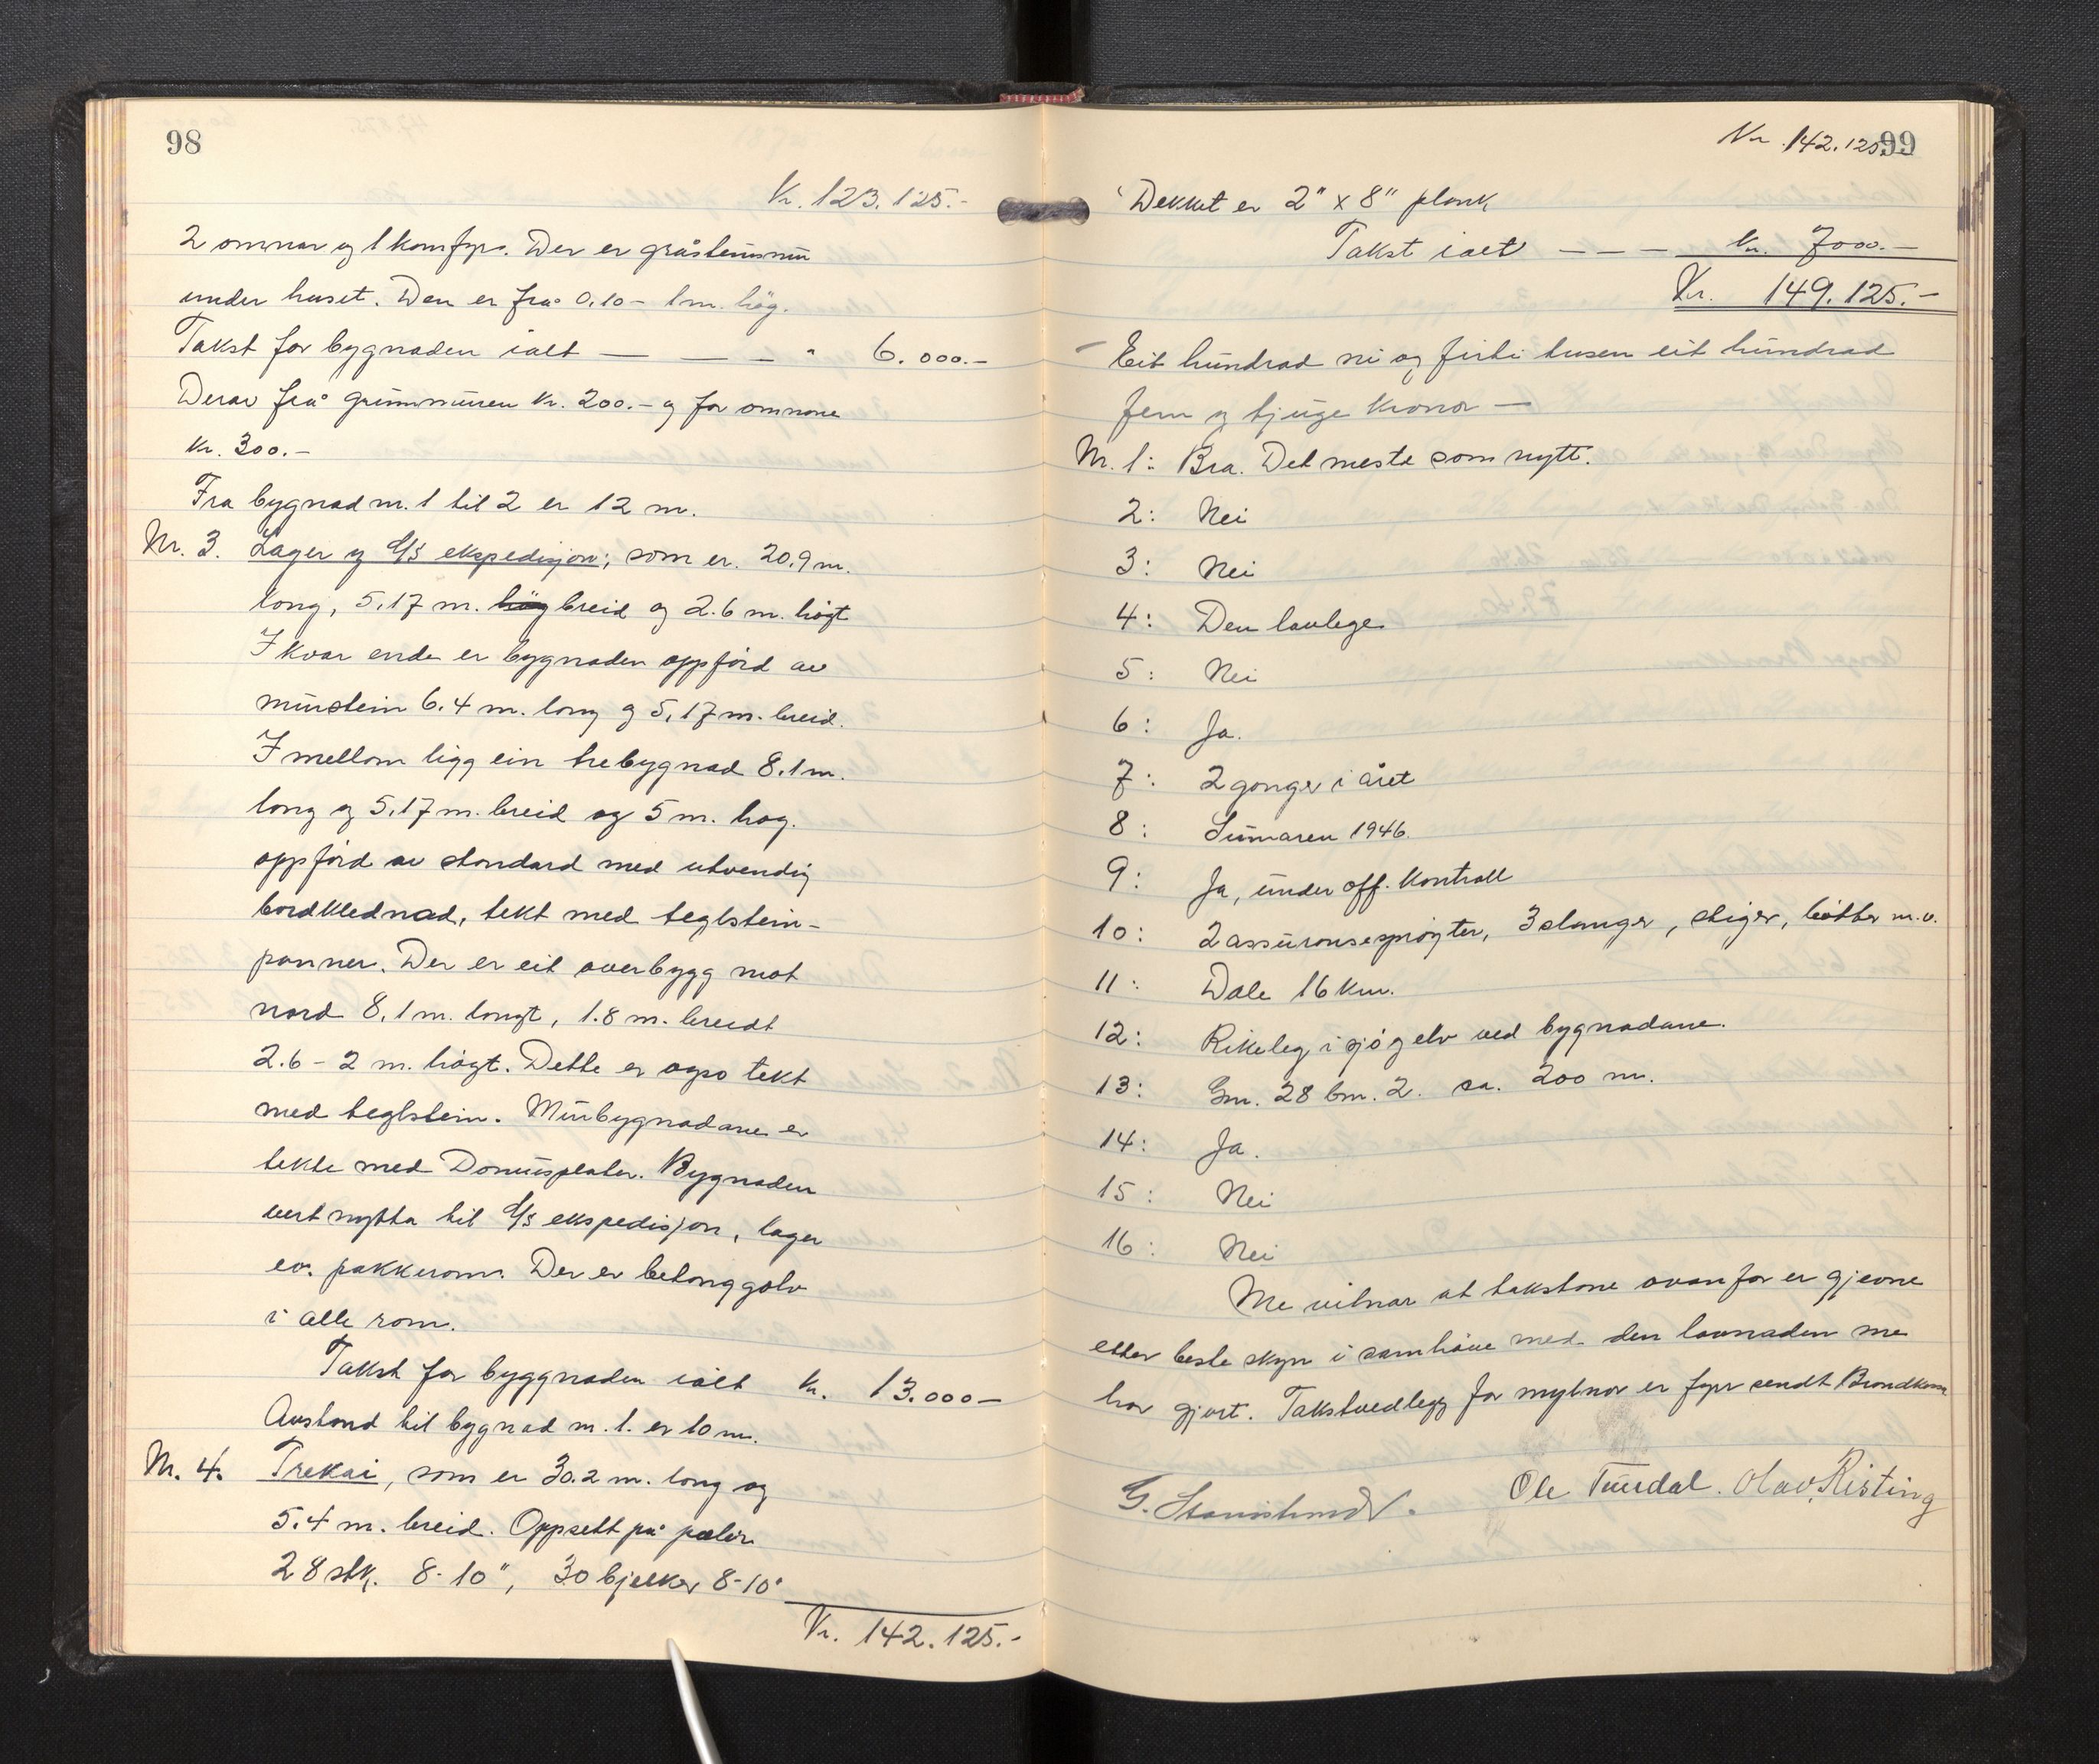 98
Kr. 123.125.-
2 omnar og 1 komfyr. Der er gråsteinsmur
under huset. Den er frå 0,10 - 1 m. høg.
Takst for bygnaden ialt — — — " 6.000.-
Derav frå grunnmuren kr. 200.- og for omnane
kr. 300.-
Fra bygnad nr. 1 til 2 er 12 m.
Nr. 3. Lager og D/S ekspedisjon; som er. 20.9 m.
long, 5,17 m. høg breid og 2.6 m. høgt
I kvar ende er bygnaden oppførd av
murstein 6.4 m. long og 5,17 m. breid.
I mellom ligg ein trebygnad 8.1 m.
long og 5,17 m. breid og 5 m. høg.
oppførd av standard med utvendig
bordklednad, tekt med teglstein-
panner. Der er eit overbygg mot
nord 8,1 m. longt, 1.8 m. breidt
2.6 - 2 m. høgt. Dette er også tekt
med teglstein. Murbygnadane er
tekte med Donnusplater. Bygnaden
vert nytta til D/S ekspedisjon, lager
ev. pakkerom. Der er betonggolv
i alle rom.
Takst for byggnaden ialt kr. 13.000 —
Avstand til bygnad nr. 1. er 10 m.
Nr. 4. Trekai, som er 30.2 m. long og
5.4 m. breid. Oppsett på pæler
28 stk. 8-10", 30 bjelker 8-10"
Kr. 142.125.-
Kr. 142.125.- 99
Dekket er 2" x 8" plank
Takst ialt — — — kr. 7000.—
Kr. 149.125.-
- Eit hundrad ni og firti tusen eit hundrad
fem og tjuge kronor —
Nr. 1: Bra. Det meste som nytt.
2: Nei
3: Nei
4: Den lovlege
5: Nei
6: Ja.
7: 2 gonger i året
8: Sumaren 1946.
9: Ja, under off. kontroll
10: 2 assuransesprøyter, 3 slanger, stiger, bøtter m.v.
11: Dale 16 km.
12: Rikeleg i sjø og elv ved bygnadane.
13: Gnr. 28 bnr. 2. ca. 200 m.
14: Ja.
15: Nei
16: Nei
Me vitnar at takstane ovanfor er gjevne
etter beste skyn i samhøve med den lovnaden me
har gjort. Takstvedlegg for mytnor er fyrr sendt Brandkassa
Ole Tuudal. Olav Risting